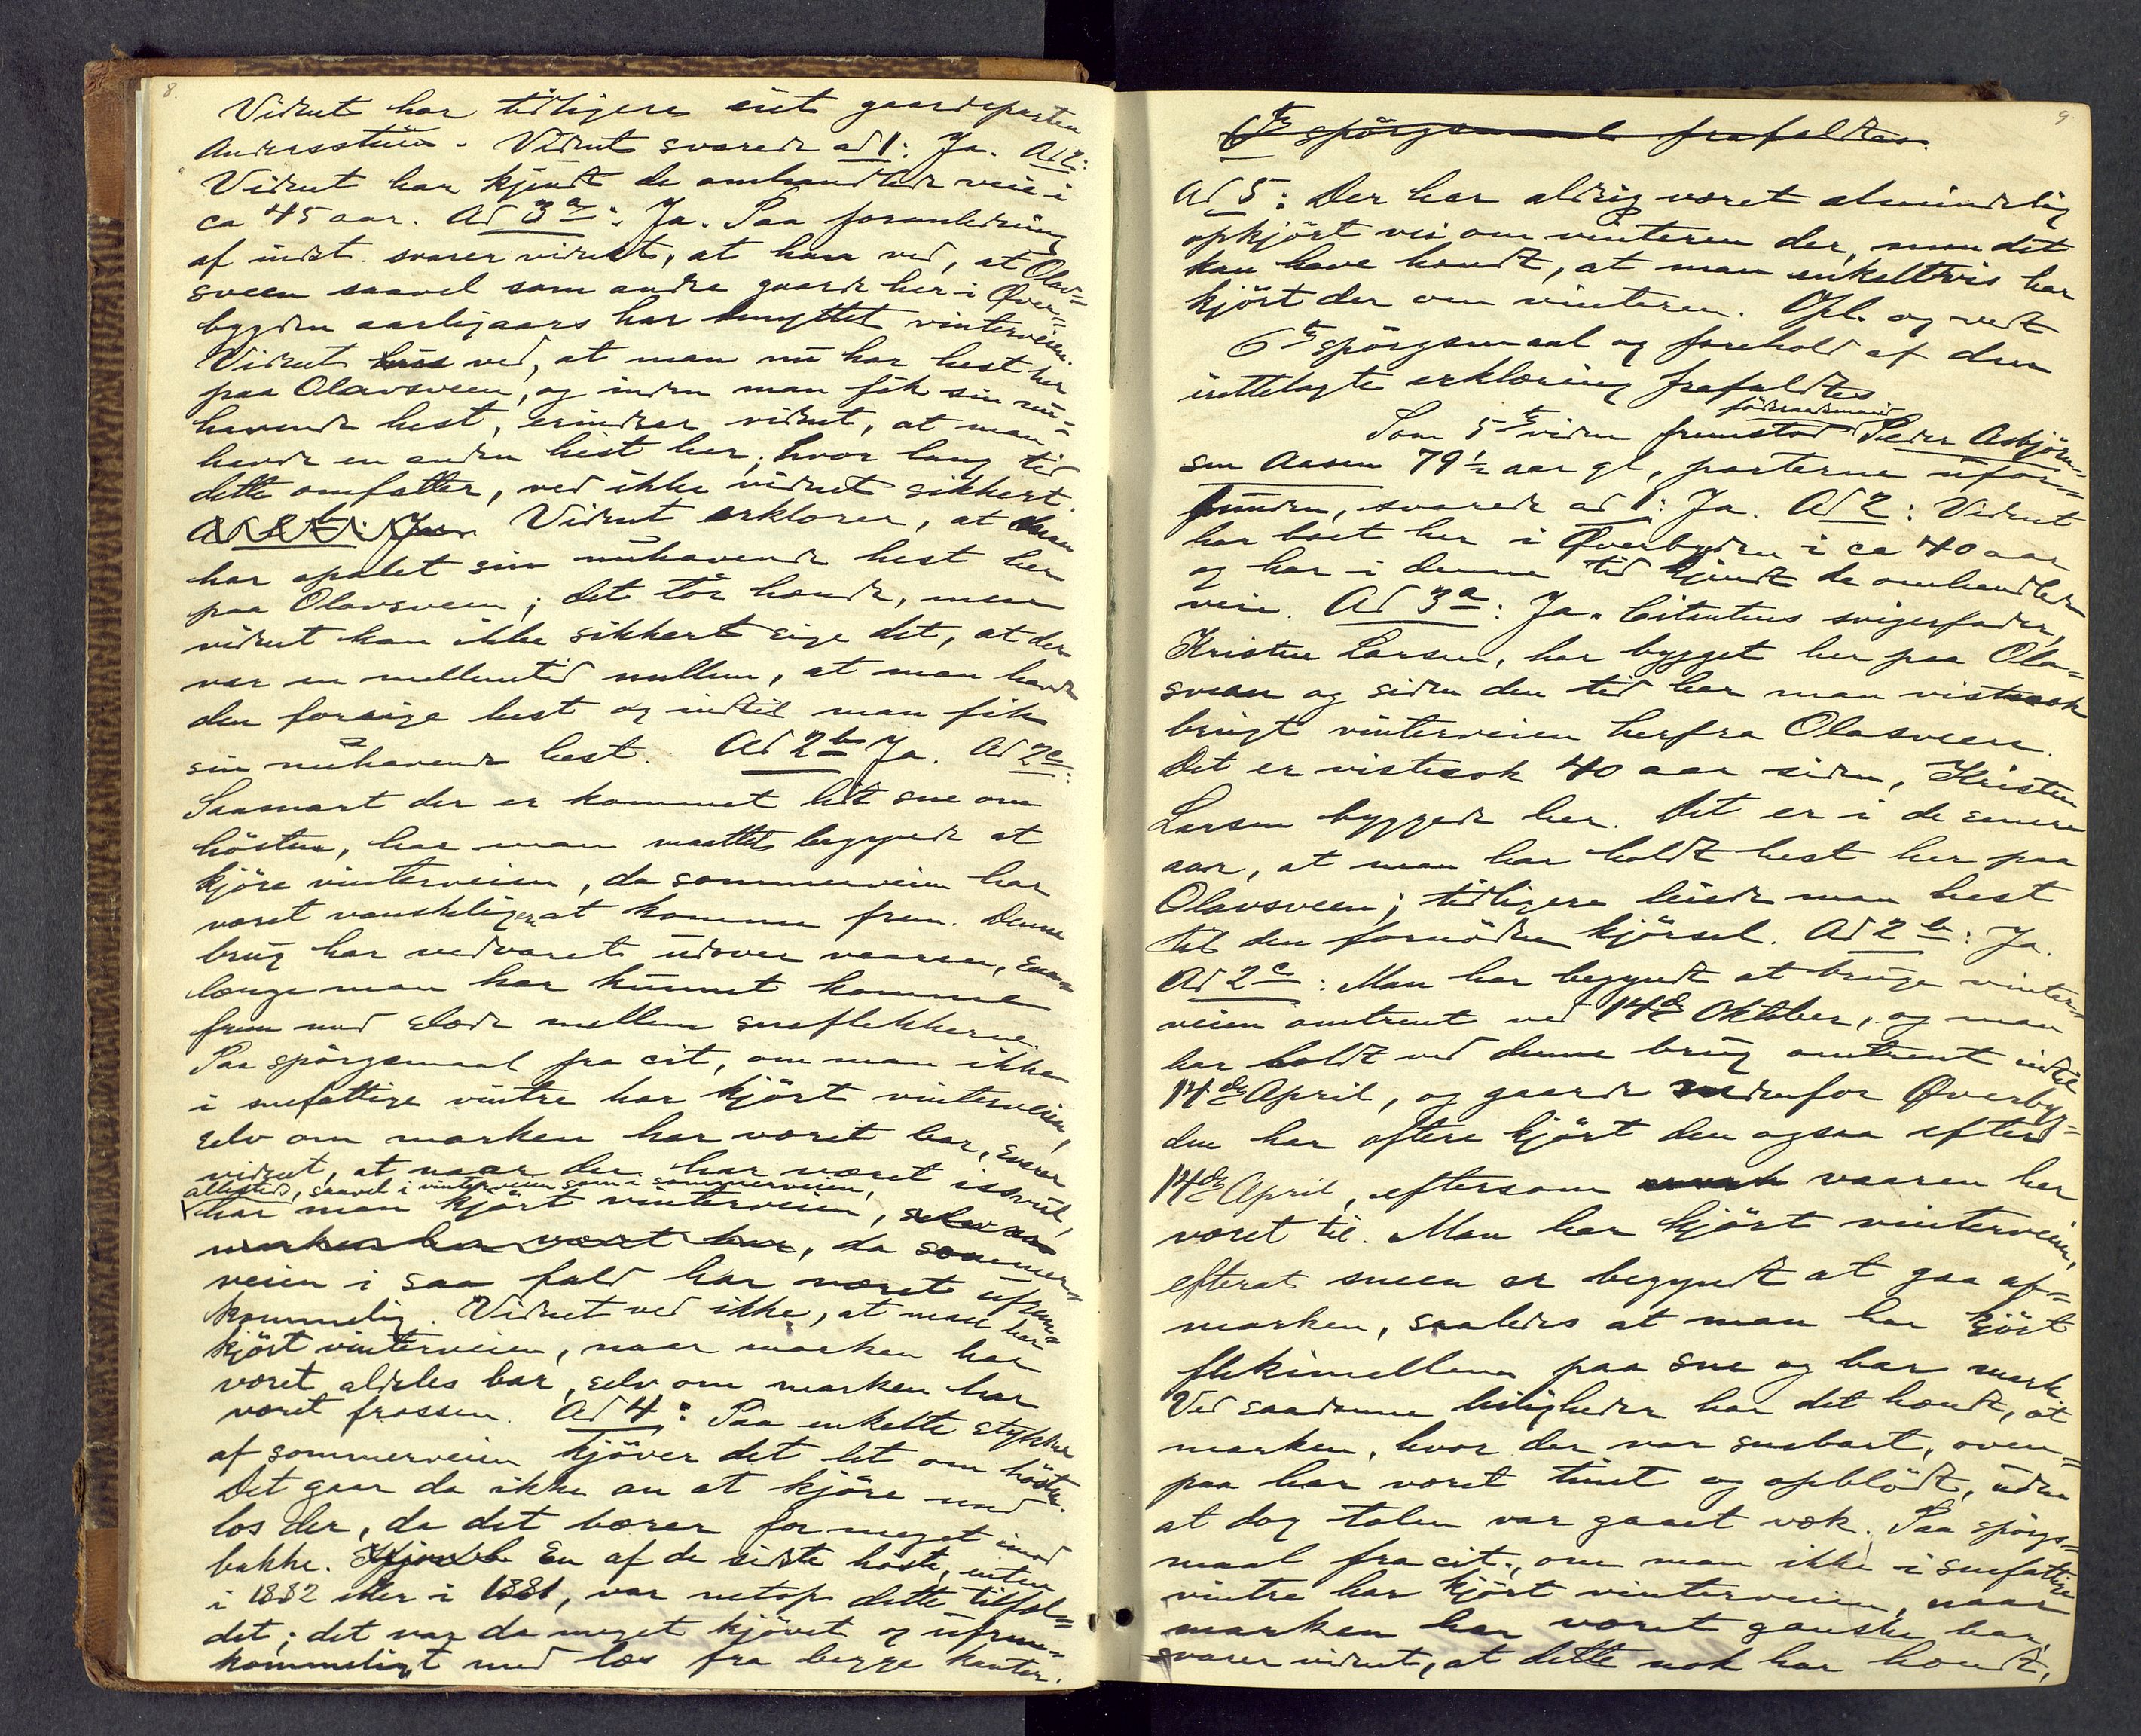 8.
Vidnet har tidligere eiet gaardsparten
Andersstuen. Vidnet svarede ad 1: Ja. Ad 2:
Vidnet har kjendt de omhandlede veie i
ca 45 aar. Ad 3a: Ja. Paa foranledning
af indst. svarer vidnet, at han ved, at Olav-
sveen saavel som andre gaarde her i Øver-
bygden aarligaars har benyttet vinterveien.
Vidnet ved, at man nu har hest her
paa Olavsveen, og inden man fik sin nu-
havende hest, erindrer vidnet, at man
havde en anden hest her; hvor lang tid
dette omfatter, ved ikke vidnet sikkert.
Ad 2 b: Ja. Vidnet erklærer, at man
har opalet sin nuhavende hest her
paa Olavsveen; det tör hænde, men
vidnet kan ikke sikkert sige det, at der
var en mellemtid mellem, at man havde
den forrige hest og indtil man fik
sin nuhavende hest. Ad 2b Ja. Ad 2c:
Saasnart der er kommet lidt sne om
hösten, har man maattet begynde at
kjöre vinterveien, da sommerveien har
været vanskeligere at komme frem. Denne
brug har vedvaret udover vaaren, saa-
længe man har kunnet komme
frem med slæde mellem sneflekkerne.
Paa spörgsmaal fra cit, om man ikke
i snefattige vintre har kjört vinterveien,
selv om marken har været bar, svarer
vidnet, at naar der har været issvul,
allesteds, saavel i vinterveien som i sommerveien,
har man kjört vinterveien, selv om
marken har været bar, da sommer-
veien i saa fald har været ufrem-
kommelig. Vidnet ved ikke, at man har
kjört vinterveien, naar marken har
været aldeles bar, selv om marken har
været frossen. Ad 4: Paa enkelte stykker
af sommerveien kjöver det let om hösten.
Det gaar da ikke an at kjöre med
læs der, da det bærer for meget imod
bakke. En af de sidste höste, enten
i 1882 eller i 1881, var netop dette tilfæl-
det; det var da meget kjövet og ufrem-
kommeligt med læs fra begge kanter.
9
6te spörgsmaal frafaldtes.
Ad 5: Der har aldrig været almindelig
opkjört vei om vinteren der, men det
kan have hændt, at man enkeltvis har
kjört der om vinteren. Opl. og vedt
6te spörgsmaal og forehold af den
irettelagte erklæring frafaldtes
föderaadsmand
Som 5te vidne fremstod Peder Asbjörn-
sen Aasen 79½ aar gl, parterne ufor-
bunden, svarede ad 1: Ja. Ad 2: Vidnet
har boet her i Øverbygden i ca 40 aar
og har i denne tid kjendt de omhandlede
veie. Ad 3a: Ja. Citantens svigerfader,
Kristen Larsen, har bygget her paa Ola-
sveen og siden den tid har man vistnok
brugt vinterveien herfra Olasveen.
Det er vistnok 40 aar siden, Kristen
Larsen byggede her. Det er i de senere
aar, at man har holdt hest her paa
Olavsveen; tidligere leiede man hest
til den fornödne kjörsel. Ad 2 b: Ja.
Ad 2c: Man har begyndt at bruge vinter-
veien omtrent ved 14de Oktober, og man
har holdt ved denne brug omtrent indtil
14de April, og gaarde nedenfor Øverbyg-
den har oftere kjört den ogsaa efter
14de April, eftersom vaaren har
været til. Man har kjört vinterveien,
efterat sneen er begyndt at gaa af
marken, saaledes at man har kjört
flekimellem paa sne og bar mark
Ved saadanne leiligheder har det hændt, at
marken, hvor der var snebart, oven-
paa har været tinet og opblödt, uden
at dog tælen var gaaet væk. Paa spörgs-
maal fra cit., om man ikke i snefattige
vintre har kjört vinterveien, naar
marken har været ganske bar,
svarer vidnet, at dette nok har hændt,